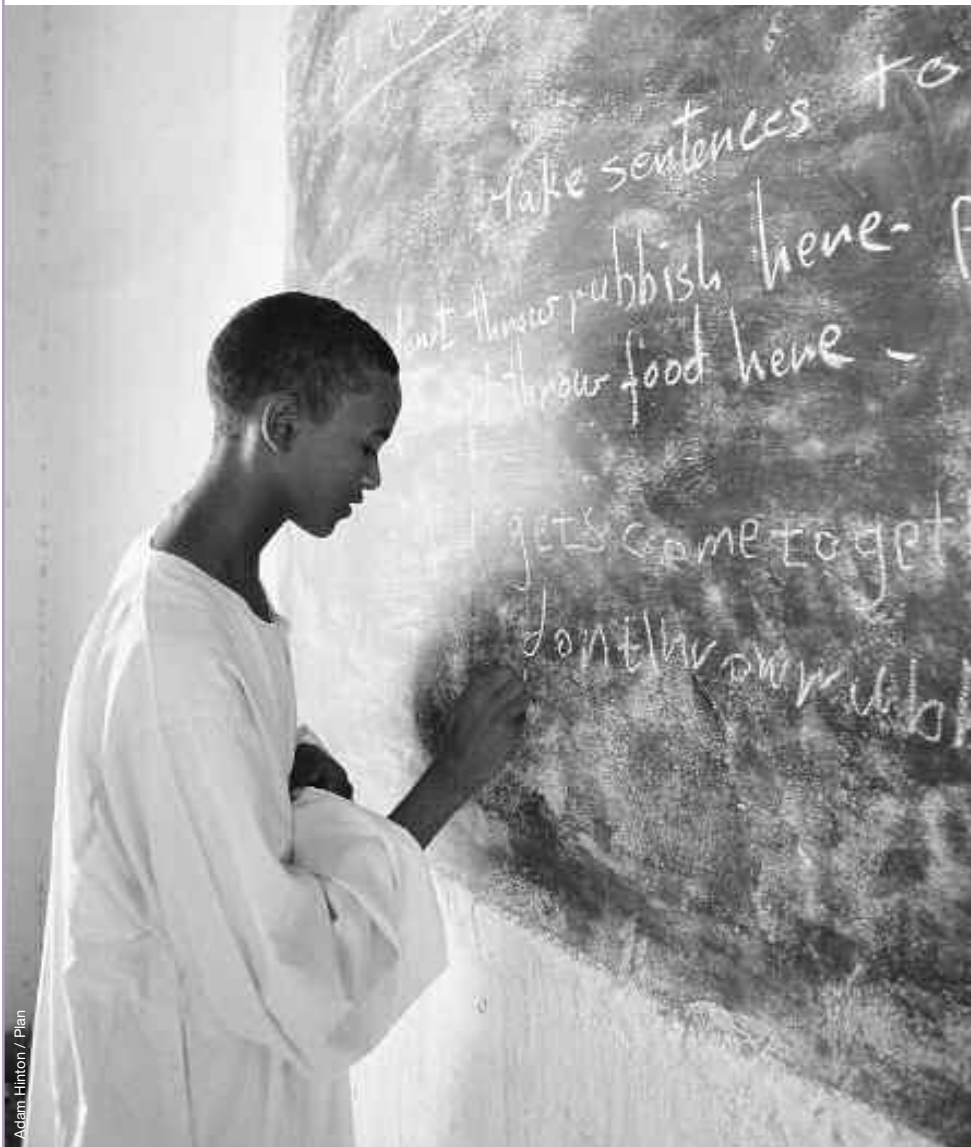 Make sentences to
dont throw rubbish here-
throw food here -
come toget
dont throw rubb
Adam Hinton / Plan